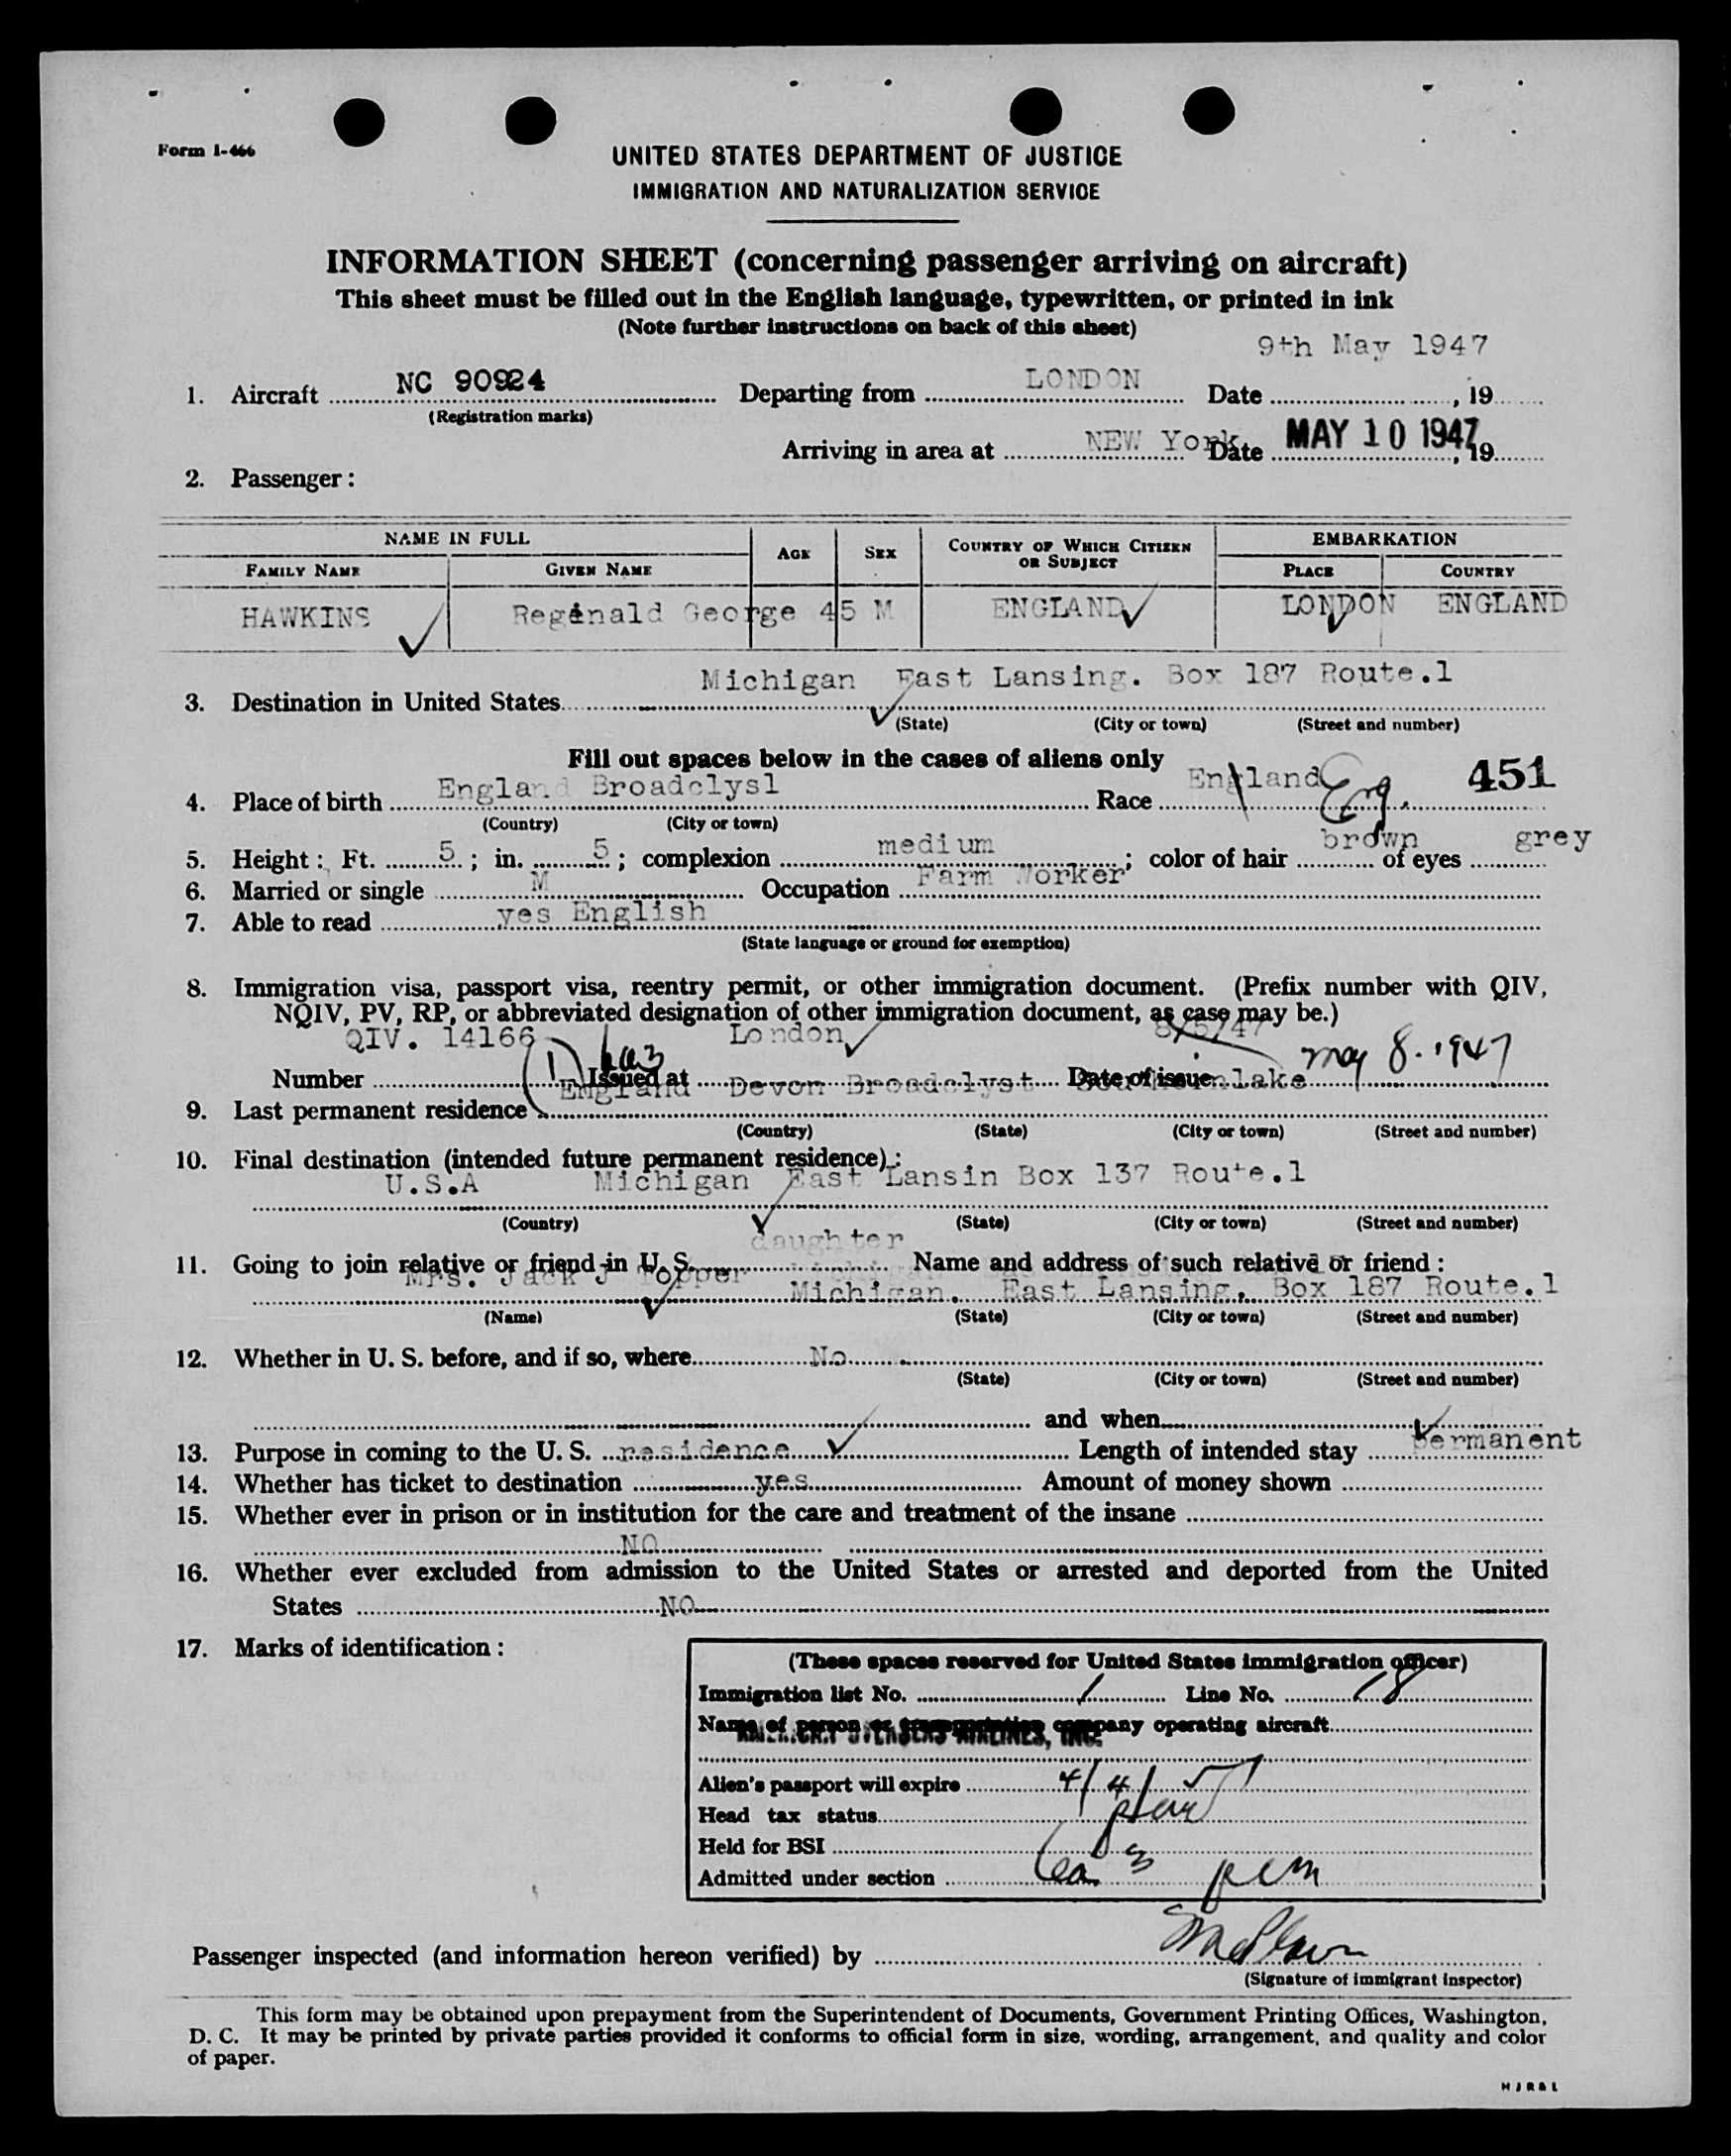 Form I-466
UNITED STATES DEPARTMENT OF JUSTICE
IMMIGRATION AND NATURALIZATION SERVICE
INFORMATION SHEET (concerning passenger arriving on aircraft)
This sheet must be filled out in the English language, typewritten, or printed in ink
(Note further instructions on back of this sheet)
9th May 1947
1. Aircraft NC 90924 Departing from LONDON Date , 19
(Registration marks)
Arriving in area at NEW York Date MAY 10 1947, 19
2. Passenger:
NAME IN FULL AGE SEX COUNTRY OF WHICH CITIZEN OR SUBJECT EMBARKATION
FAMILY NAME GIVEN NAME PLACE COUNTRY
HAWKINS Reginald George 45 M ENGLAND LONDON ENGLAND
Michigan East Lansing. Box 187 Route.1
3. Destination in United States
(State) (City or town) (Street and number)
Fill out spaces below in the cases of aliens only
4. Place of birth England Broadclysl Race England Eng. 451
(Country) (City or town)
5. Height: Ft. 5; in. 5; complexion medium; color of hair brown of eyes grey
6. Married or single M Occupation Farm Worker
7. Able to read yes English
(State language or ground for exemption)
8. Immigration visa, passport visa, reentry permit, or other immigration document. (Prefix number with QIV,
NQIV, PV, RP, or abbreviated designation of other immigration document, as case may be.)
QIV. 14166 London 8/5/47
Number Issued at Date of issue May 8. 1947
England Devon Broadclyst
9. Last permanent residence
(Country) (State) (City or town) (Street and number)
10. Final destination (intended future permanent residence):
U.S.A Michigan East Lansin Box 137 Route.1
(Country) (State) (City or town) (Street and number)
daughter
11. Going to join relative or friend in U. S. Name and address of such relative or friend:
Mrs. Jack J Topper Michigan. East Lansing. Box 187 Route.1
(Name) (State) (City or town) (Street and number)
12. Whether in U. S. before, and if so, where No
(State) (City or town) (Street and number)
and when
13. Purpose in coming to the U. S. residence Length of intended stay permanent
14. Whether has ticket to destination yes Amount of money shown
15. Whether ever in prison or in institution for the care and treatment of the insane
NO
16. Whether ever excluded from admission to the United States or arrested and deported from the United
States NO
17. Marks of identification:
(These spaces reserved for United States immigration officer)
Immigration list No. 1 Line No. 18
Name of person or transportation company operating aircraft
AMERICAN OVERSEAS AIRLINES, INC.
Alien's passport will expire 4/4/51
Head tax status
Held for BSI
Admitted under section 3 pem
Passenger inspected (and information hereon verified) by
(Signature of immigrant inspector)
This form may be obtained upon prepayment from the Superintendent of Documents, Government Printing Offices, Washington,
D. C. It may be printed by private parties provided it conforms to official form in size, wording, arrangement, and quality and color
of paper.
HJR&L